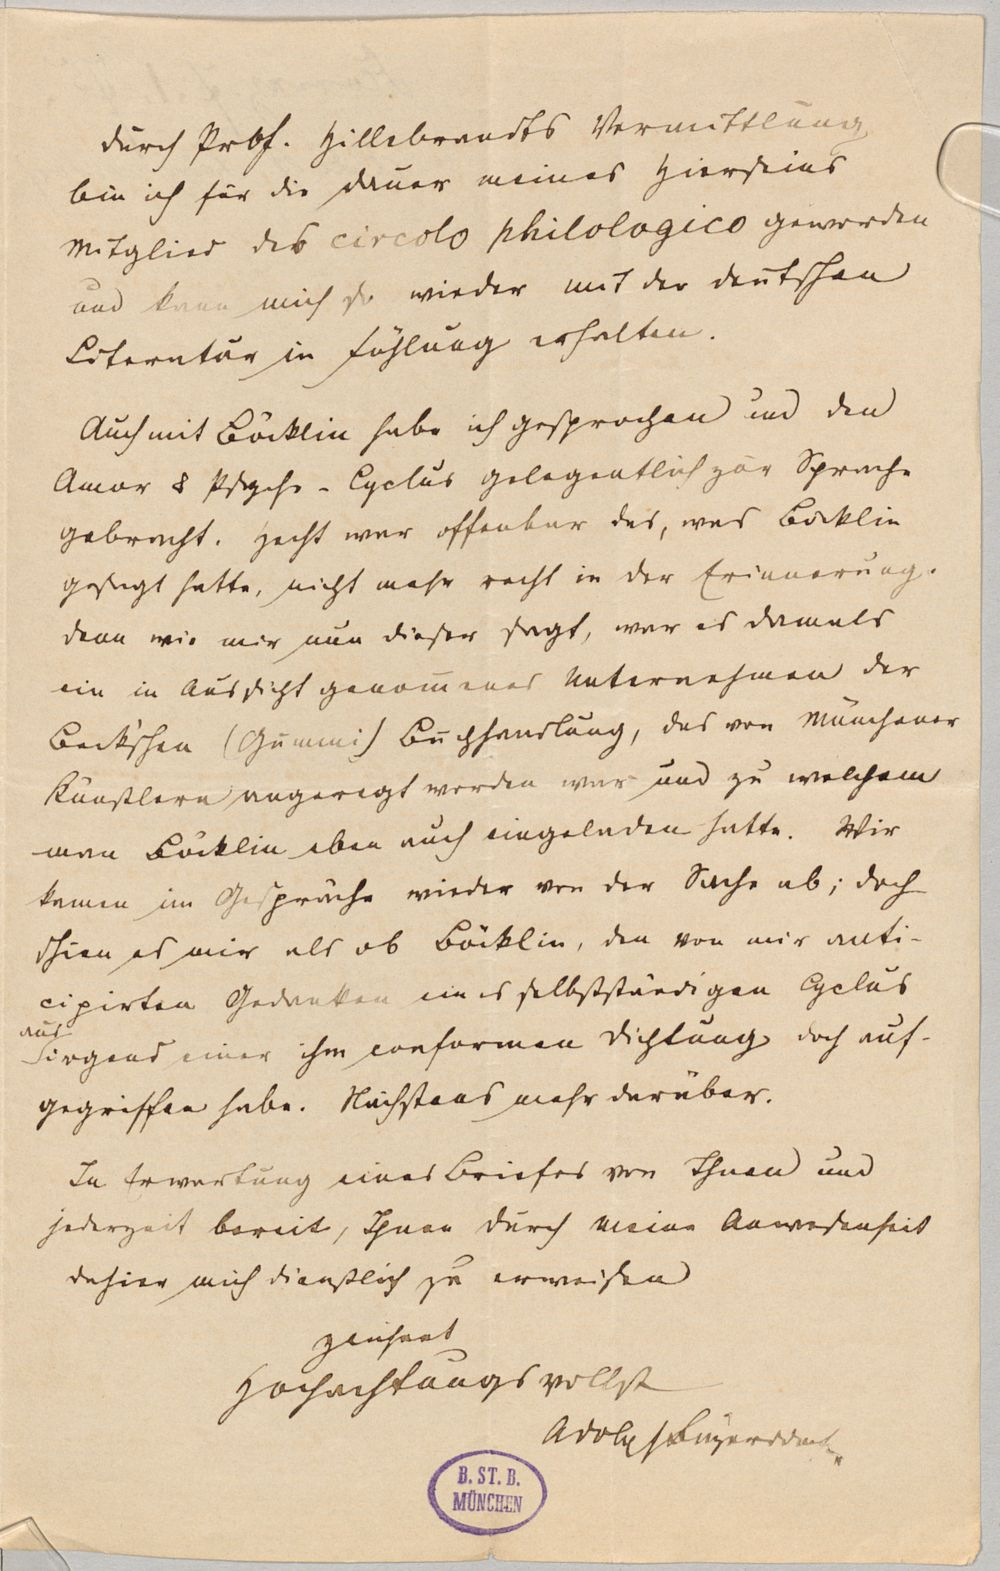 Durch Prof. Hillebrandts Vermittlung
bin ich für die Dauer meines Hierseins
Mitglied des circolo philologico geworden
und kann mich so wieder mit der deutschen
Literatur in Fühlung erhalten.
Auch mit Böcklin habe ich gesprochen und den
Amor & Psyche-Cyclus gelegentlich zur Sprache
gebracht. Hecht war offenbar das, was Böcklin
gesagt hatte, nicht mehr recht in der Erinnerung.
denn wie mir nun dieser sagt, war es damals
ein in Aussicht genom̅enes Unternehmen der
Beck'schen (Gummi) Buchhandlung, das von Münchener
Künstlern angeregt worden war und zu welchem
man Böcklin eben auch eingeladen hatte. Wir
kamen im Gespräche wieder von der Sache ab; doch
schien es mir als ob Böcklin, den von mir anti-
cipirten Gedanken eines selbstständigen Cyclus
aus
irgend einer ihm conformen Dichtung doch auf-
gegriffen habe. Nächstens mehr darüber.
In Erwartung eines Briefes von Ihnen und
jederzeit bereit, Ihnen durch meine Anwesenheit
dahier mich dienstlich zu erweisen
zeichnet
Hochachtungsvollst
Adolph Bayersdorfer
B. ST. B.
MÜNCHEN